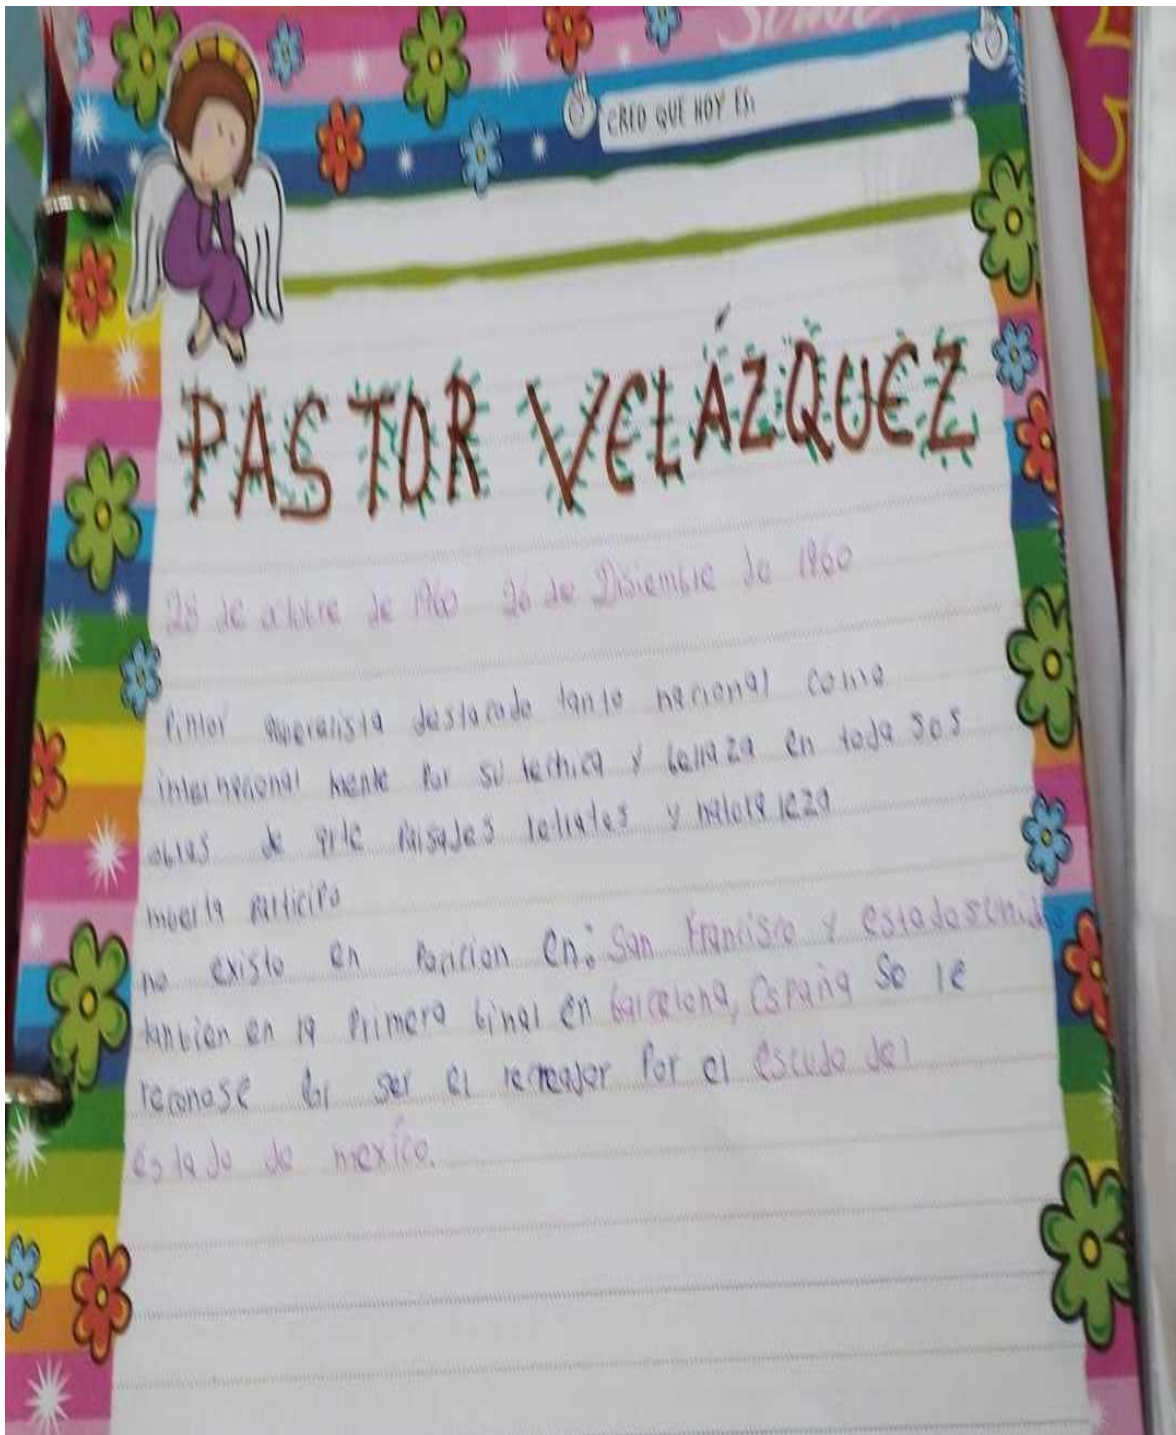 CREO QUE HOY ES:
PASTOR VELÁZQUEZ
28 de octubre de 1960 26 de Disiembre de 1960
Pintor destacado tanto nacional como
internacional mente Por su technica y bellaza en toda sos
obras de arte Paisajes retrates y natoraleza
muerta participo
no existo en Poricion en: San Francisco y estados unidos
tanbien en la Primera binal en barcelona, España Se le
reconose Por ser el recreador Por el escudo del
estado de mexíco.